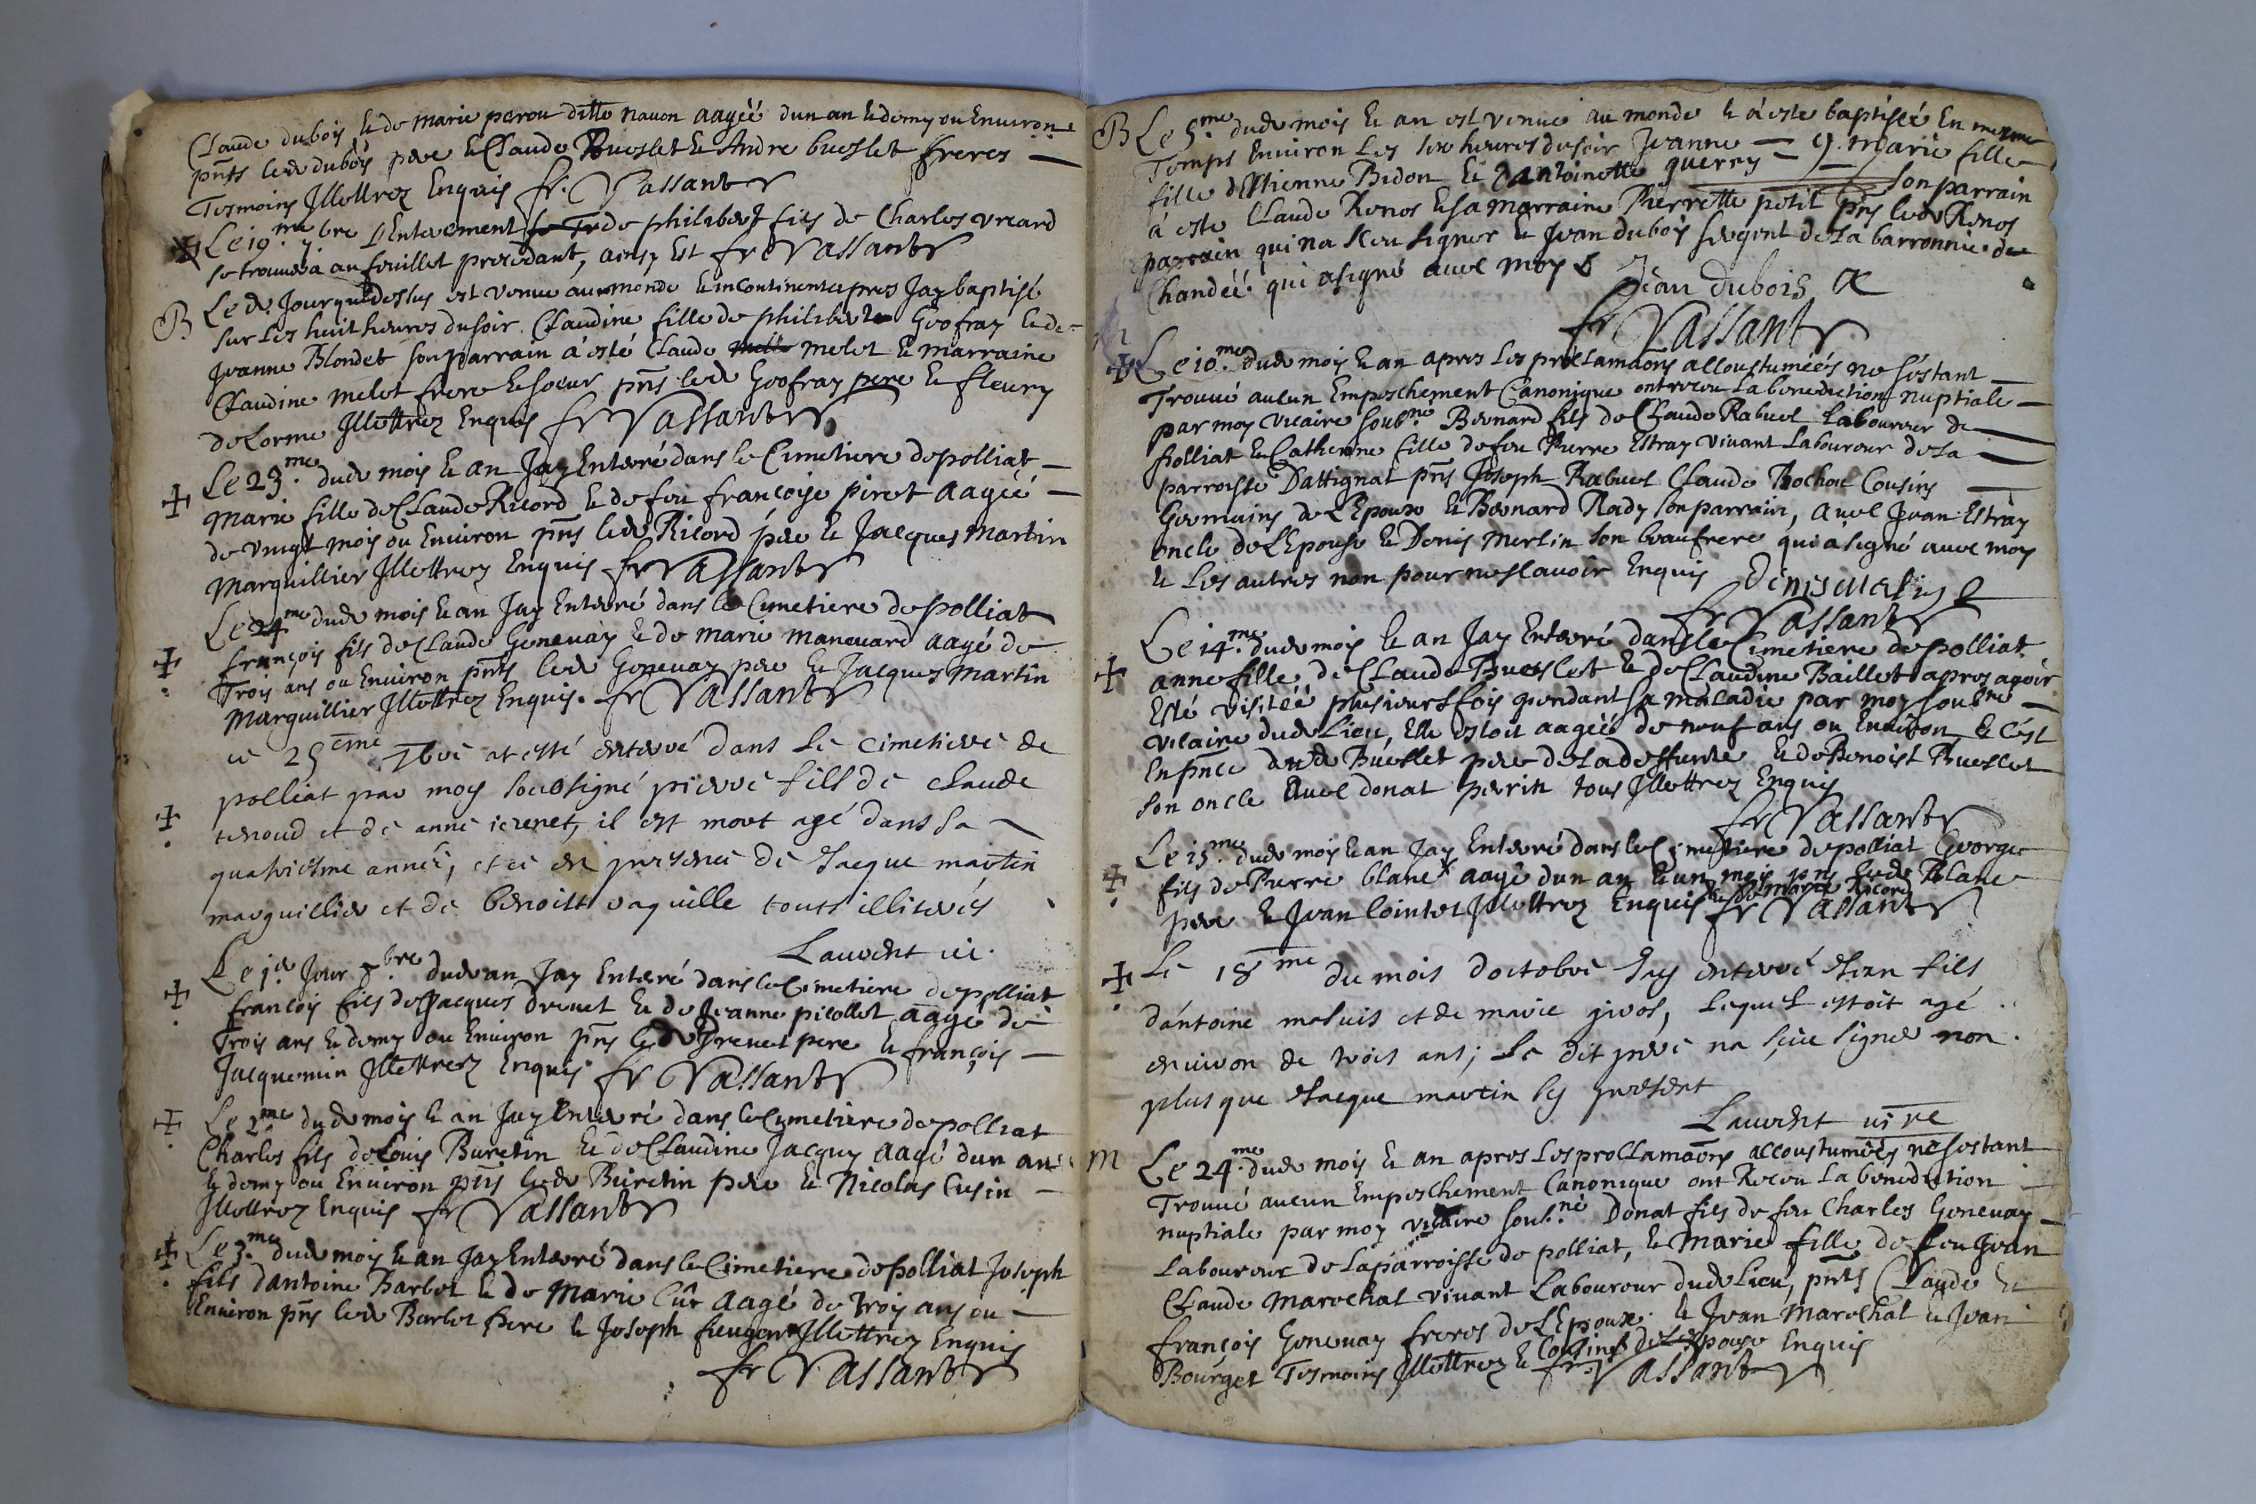 Claude dubois & de Marie perou ditte navon aagéé dun an & demy ou Environ
pnts led dubois pere & Claude Bueslet & Andre bueslet freres
Tesmoins Illettrez Enquis fr. Vassant
Le 19.me 7.bre L'Enterement de philibert fils de Charles vicard
se trouvera au feuillet precedant, ainsy Est fr Vassant
B Le d. Jour que dessus est venue au monde & incontinent apres Jay baptisé
sur les huit heures du soir Claudine fille de philibert Geofray & de
Jeanne Blondet son parrain à esté Claude melot & marraine
Claudine melot frere & soeur pnts led Geofray pere & fleury
deLorme Illettrez Enquis fr Vassant
Le 23.me dud mois & an Jay Enterré dans le Cimetiere de polliat
Marie fille de Claude Ricord & de feu françoise piret aagéé
de vingt mois ou Environ pnts led Ricord pere & Jacques Martin
Marguillier Illettrez Enquis fr Vassant
Le 24.me dud mois & an Jay Enterré dans le Cimetiere de polliat
françois fils de Claude Genevay & de marie manevard aagé de
Trois ans ou Environ pnts led Genevay pere & Jacques Martin
Marguillier Illettrez Enquis. fr Vassant
ce 25eme 7bre at esté enterré dans le cimetiere de
polliat par moy soubsigné pierre fils de claude
tenoud et de anne ierenet, il est mort agé dans sa
quatriesme année, et ce en presence de Jacque martin
marguillier et de benoist vaquille touts illiterés
Laurent vic.
Le 1.er Jour 8bre dud an Jay Enterré dans le Cimetiere de polliat
françois fils de Jacques drevet & de Jeanne picollet aagé de
Trois ans & demy ou Environ pnts led Drevet pere & françois
Jacquemin Illettrez Enquis fr Vassant
Le 2.me dud mois & an Jay Enterré dans le Cimetiere de polliat
Charles fils de Louis Buretin & de Claudine Jacquy aagé dun an
& demy ou Environ pnts led Buretin pere & Nicolas Cusin
Illettrez Enquis fr Vassant
Le 3.me dud mois & an Jay Enterré dans le Cimetiere de polliat Joseph
fils dantoine Barbet & de Marie Cùr aagé de trois ans ou
Environ pnts led Barbet pere & Joseph feugere Illettrez Enquis
fr Vassant
B Le 5.me dud mois & an est venue au monde & à esté baptiséé En mesme
Temps Environ les six heures du soir Jeanne Marie fille
fille dEstienne Bidon & dantoinette querry son parrain
à esté Claude Renos & sa marraine Pierrette petit pnts led Renos
parrain qui na sceu signer & Jean dubois sergent de la barronnie de
Chandéé qui a signé avec moy
Jean dubois
fr Vassant
Le 10.me dud mois & an apres les proclamaons accoustuméés ne sestant
Trouvé aucun Empeschement Canonique ont receu la benediction nuptiale
par moy vicaire soub.né Bernard fils de Claude Rabuel Laboureur de
Polliat & Catherine fille de feu Pierre Estray vivant Laboureur de la
parroisse Dattignat pnts Joseph Rabuel Claude Rochat Cousins
Germains de LEpoux & Bernard Rady son parrain, avec Jean Estray
oncle de LEpouse & Denis Merlin son beaufrere qui a signé avec moy
& les autres non pour ne scavoir Enquis Denis Merlin
fr Vassant
Le 14.me dud mois & an Jay Enterré dans le Cimetiere de polliat
anne fille de Claude Bueslet & de Claudine Baillet apres avoir
Esté visitéé plusieurs fois pendant sa maladie par moy soub.né
vicaire dud Lieu, Elle estoit aagéé de neuf ans ou Environ & c'est
En pnce dud Bueslet pere de la deffunte & de Benoist Bueslet
son oncle avec donat perrin tous Illettrez Enquis
fr Vassant
Le 15.me dud mois & an Jay Enterré dans le Cimetiere de polliat George
fils de Pierre blanc aagé dun an & un mois pnts led Blanc
& de marie Ricord
pere & Jean Cointet Illettrez Enquis fr Vassant
Le 18me du mois doctobre Jay enterré Jean fils
dantoine maluis et de marie givos, lequel estoit agé
environ de trois ans; le dit pere na sceu signer non
plus que Jacque martin les present
Laurent vire
M Le 24.me dud mois & an apres les proclamaons accoustuméés ne sestant
Trouvé aucun Empeschement Canonique ont Receu la benediction
nuptiale par moy vicaire soub.né Donat fils de feu Charles Genevay
Laboureur de la parroisse de polliat, & Marie fille de feu Jean
Claude Marechal vivant Laboureur dud Lieu, pnts Claude &
françois Genevay freres de LEpoux & Jean Marechal & Jean
Bourget Tesmoins Illettrez & Cousins de Lepouse Enquis
fr. Vassant